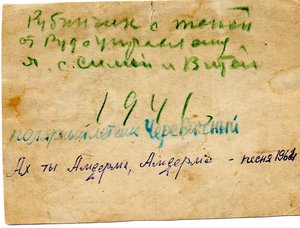 Рубинчик с женой
от Рудоуправления
я, с Симой и Витей
1941
полярный летчик Черевичный
Ах ты Амдерма, Амдерма - песня 1966г